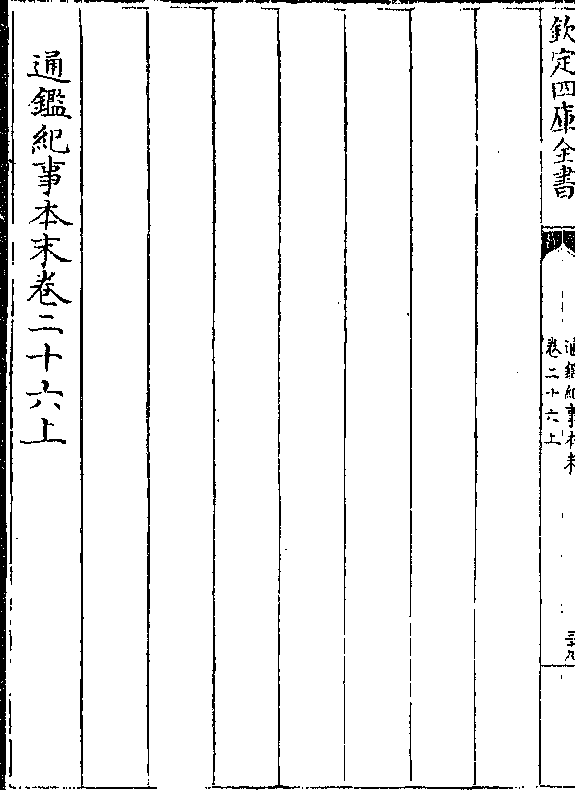 欽定四庫全書
通鑑紀事本末
卷二十六上
通鑑紀事本末卷二十六上